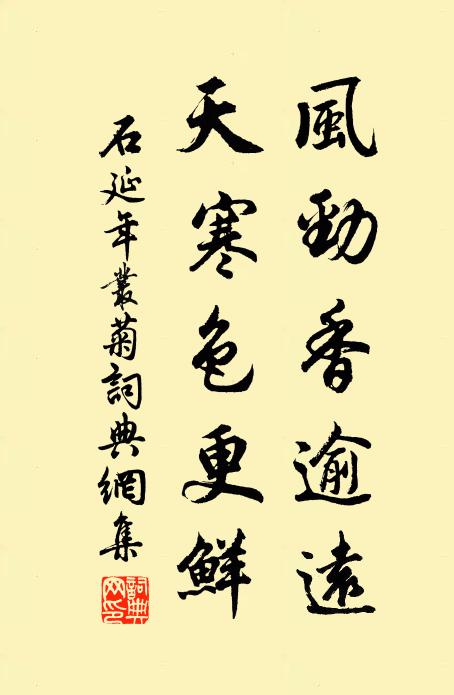 風勁香逾遠
天寒色更鮮
石延年叢菊詞典網集
詞典網印